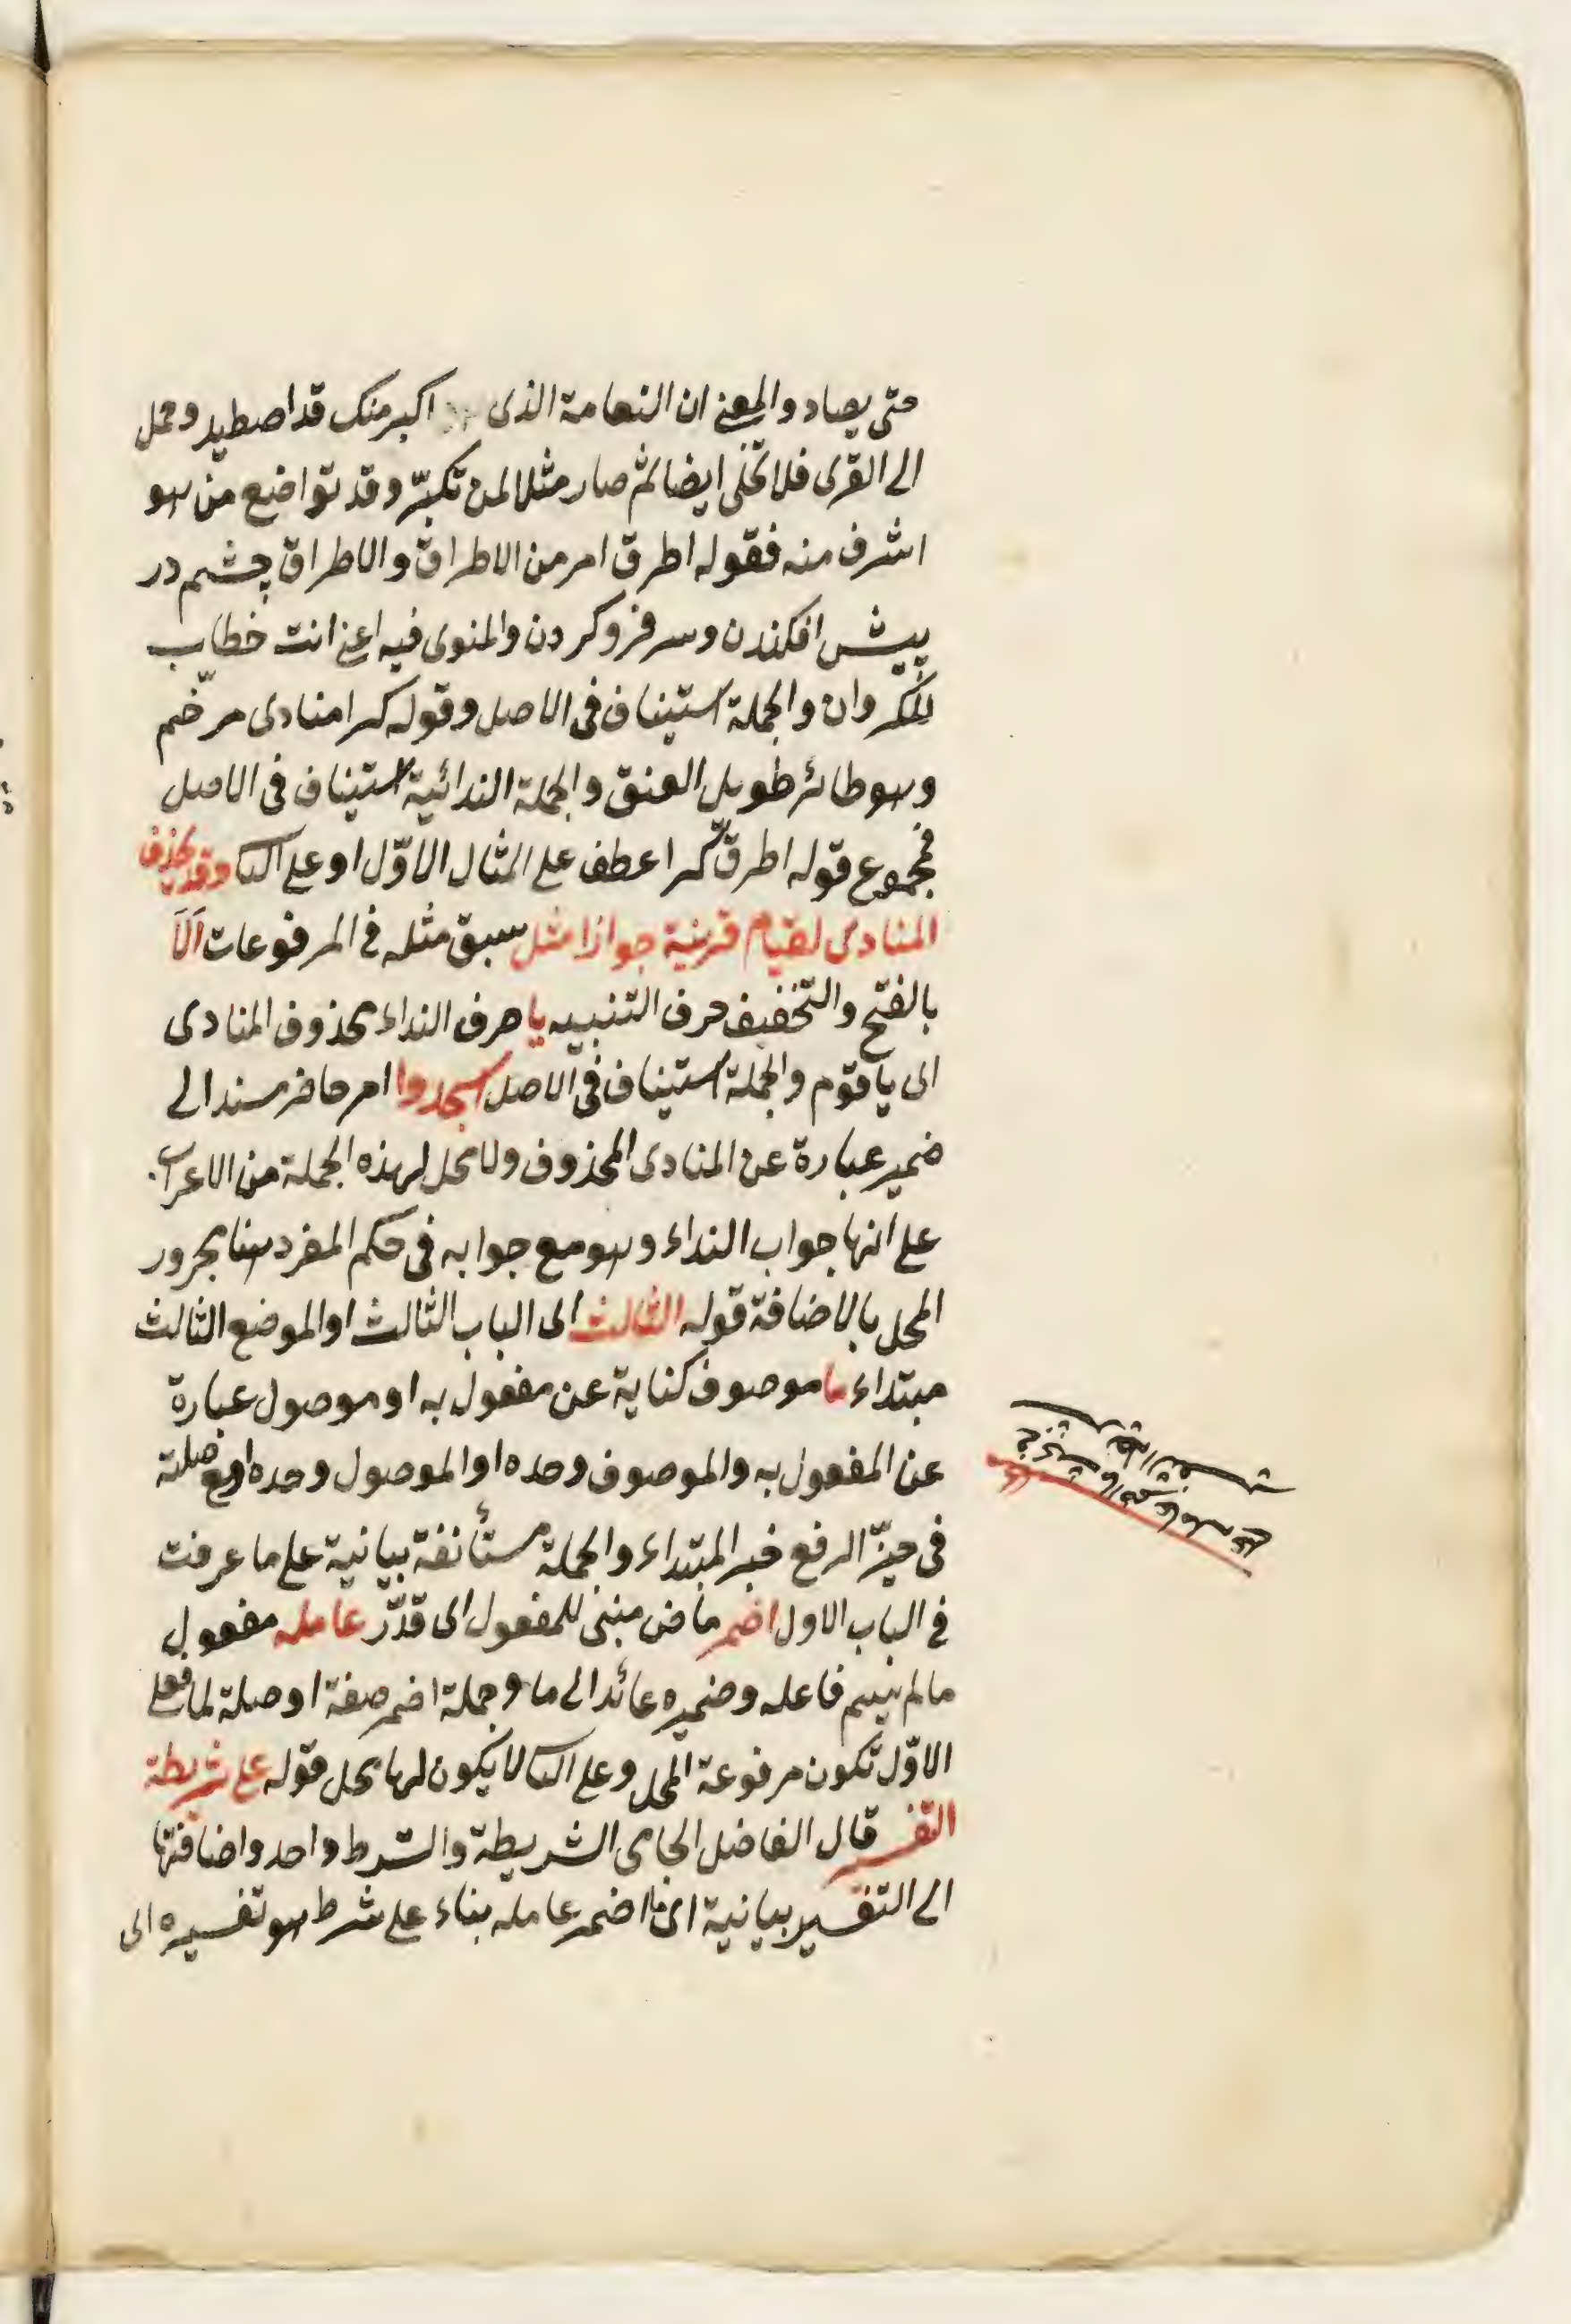 حتى يصاد والمعنى ان النعامة الذى اكبر منك قد اصطيد وحمل
الى القرى فلا تخلى ايضا ثم صار مثلا لمن تكبّر وقد تواضع من هو
اشرف منه فقوله اطرق امر من الاطراق والاطراق چشم در
پيش افكندن وسر فرو كردن والمنوى فيه اعنى انت خطاب
للكروان والجملة استيناف فى الاصل وقوله كرا منادى مرخّم
وهو طائر طويل العنق والجملة الندائية استيناف فى الاصل
فمجموع قوله اطرق كرا عطف على المثال الاوّل او على الثا وقد يحذف
المنادى لقيام قرينة جوازا مثل سبق مثله فى المرفوعات اَلَا
بالفتح والتخفيف حرف التنبيه يا حرف النداء محذوف المنادى
اى يا قوم والجملة استيناف فى الاصل اسجدوا امر حاضر مسند الى
ضمير عبارة عن المنادى المحذوف ولا محل لهذه الجملة من الاعراب
على انها جواب النداء وهو مع جوابه فى حكم المفرد هنا مجرور
المحل بالاضافة قوله الثالث اى الباب الثالث او الموضع الثالث
مبتداء ما موصوف كناية عن مفعول به او موصول عبارة
عن المفعول به والموصوف وحده او الموصول وحده او مع صلته
فى حيّز الرفع خبر المبتداء والجملة مستأنفة بيانية على ما عرفت
فى الباب الاول اضمر ماض مبنى للمفعول اى قدّر عامله مفعول
مالم يسم فاعله وضميره عائد الى ما وجملة اضمر صفة او صلة لما فعلى
الاوّل تكون مرفوعة المحل وعلى الثا لا يكون لها محل قوله على شريطة
التفسير قال الفاضل الجامى الشريطة والشرط واحد واضافتها
الى التفسير بيانية اى ما اضمر عامله بناء على شرط هو تفسيره اى